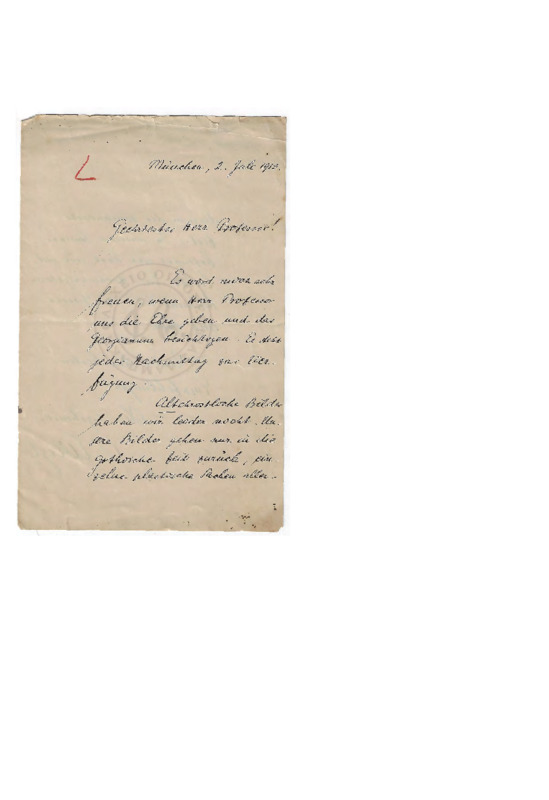 München, 2. Juli 1910.
Geehrtester Herr Professor!
Es wird mich sehr
freuen, wenn Herr Professor
uns die Ehre geben und das
Georgianum besichtigen. Es steht
jeden Nachmittag zur Ver-
fügung.
Altchristliche Bilder
haben wir leider nicht. Un-
sere Bilder gehen nur in die
gothische Zeit zurück, ein-
zelne plastische Sachen aller-